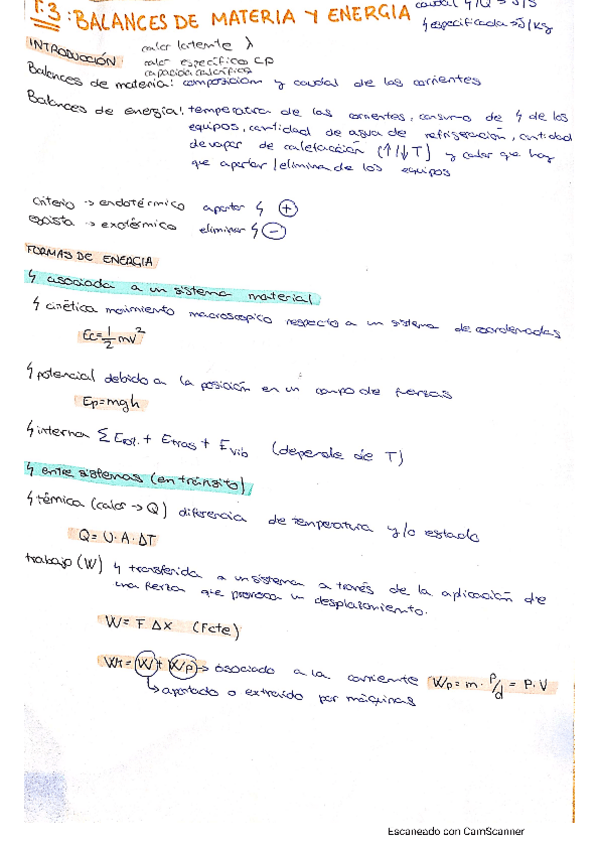 T.3: BALANCES DE MATERIA Y ENERGÍA
caudal ϟ/Q → J/S
ϟ especificada → J/kg
INTRODUCCIÓN
calor latente λ
calor específico Cp
capacidad calorífica
Balances de materia: composición y caudal de las corrientes
Balances de energía: temperatura de las corrientes, consumo de ϟ de los
equipos, cantidad de agua de refrigeración, cantidad
de vapor de calefacción (↑/↓T) y calor que hay
que aportar/elimina de los equipos
criterio → endotérmico aportar ϟ +
egoísta → exotérmico eliminar ϟ -
FORMAS DE ENERGIA
ϟ asociada a un sistema material
ϟ cinética movimiento macroscopico respecto a un sistema de coordenadas
Ec=1/2 mv²
ϟ potencial debido a la posición en un campo de fuerzas
Ep=mgh
ϟ interna Σ Erot. + Etras + Evib (depende de T)
ϟ entre sistemas (en tránsito)
ϟ térmica (calor → Q) diferencia de temperatura y/o estado
Q = U·A·ΔT
trabajo (W) ϟ transferida a un sistema a través de la aplicación de
una fuerza que provoca un desplazamiento.
W = F ΔX (Fcte)
Wt = W + Wp → asociado a la corriente Wp = m · P/d = P·V
↳ aportado o extraído por máquinas
Escaneado con CamScanner